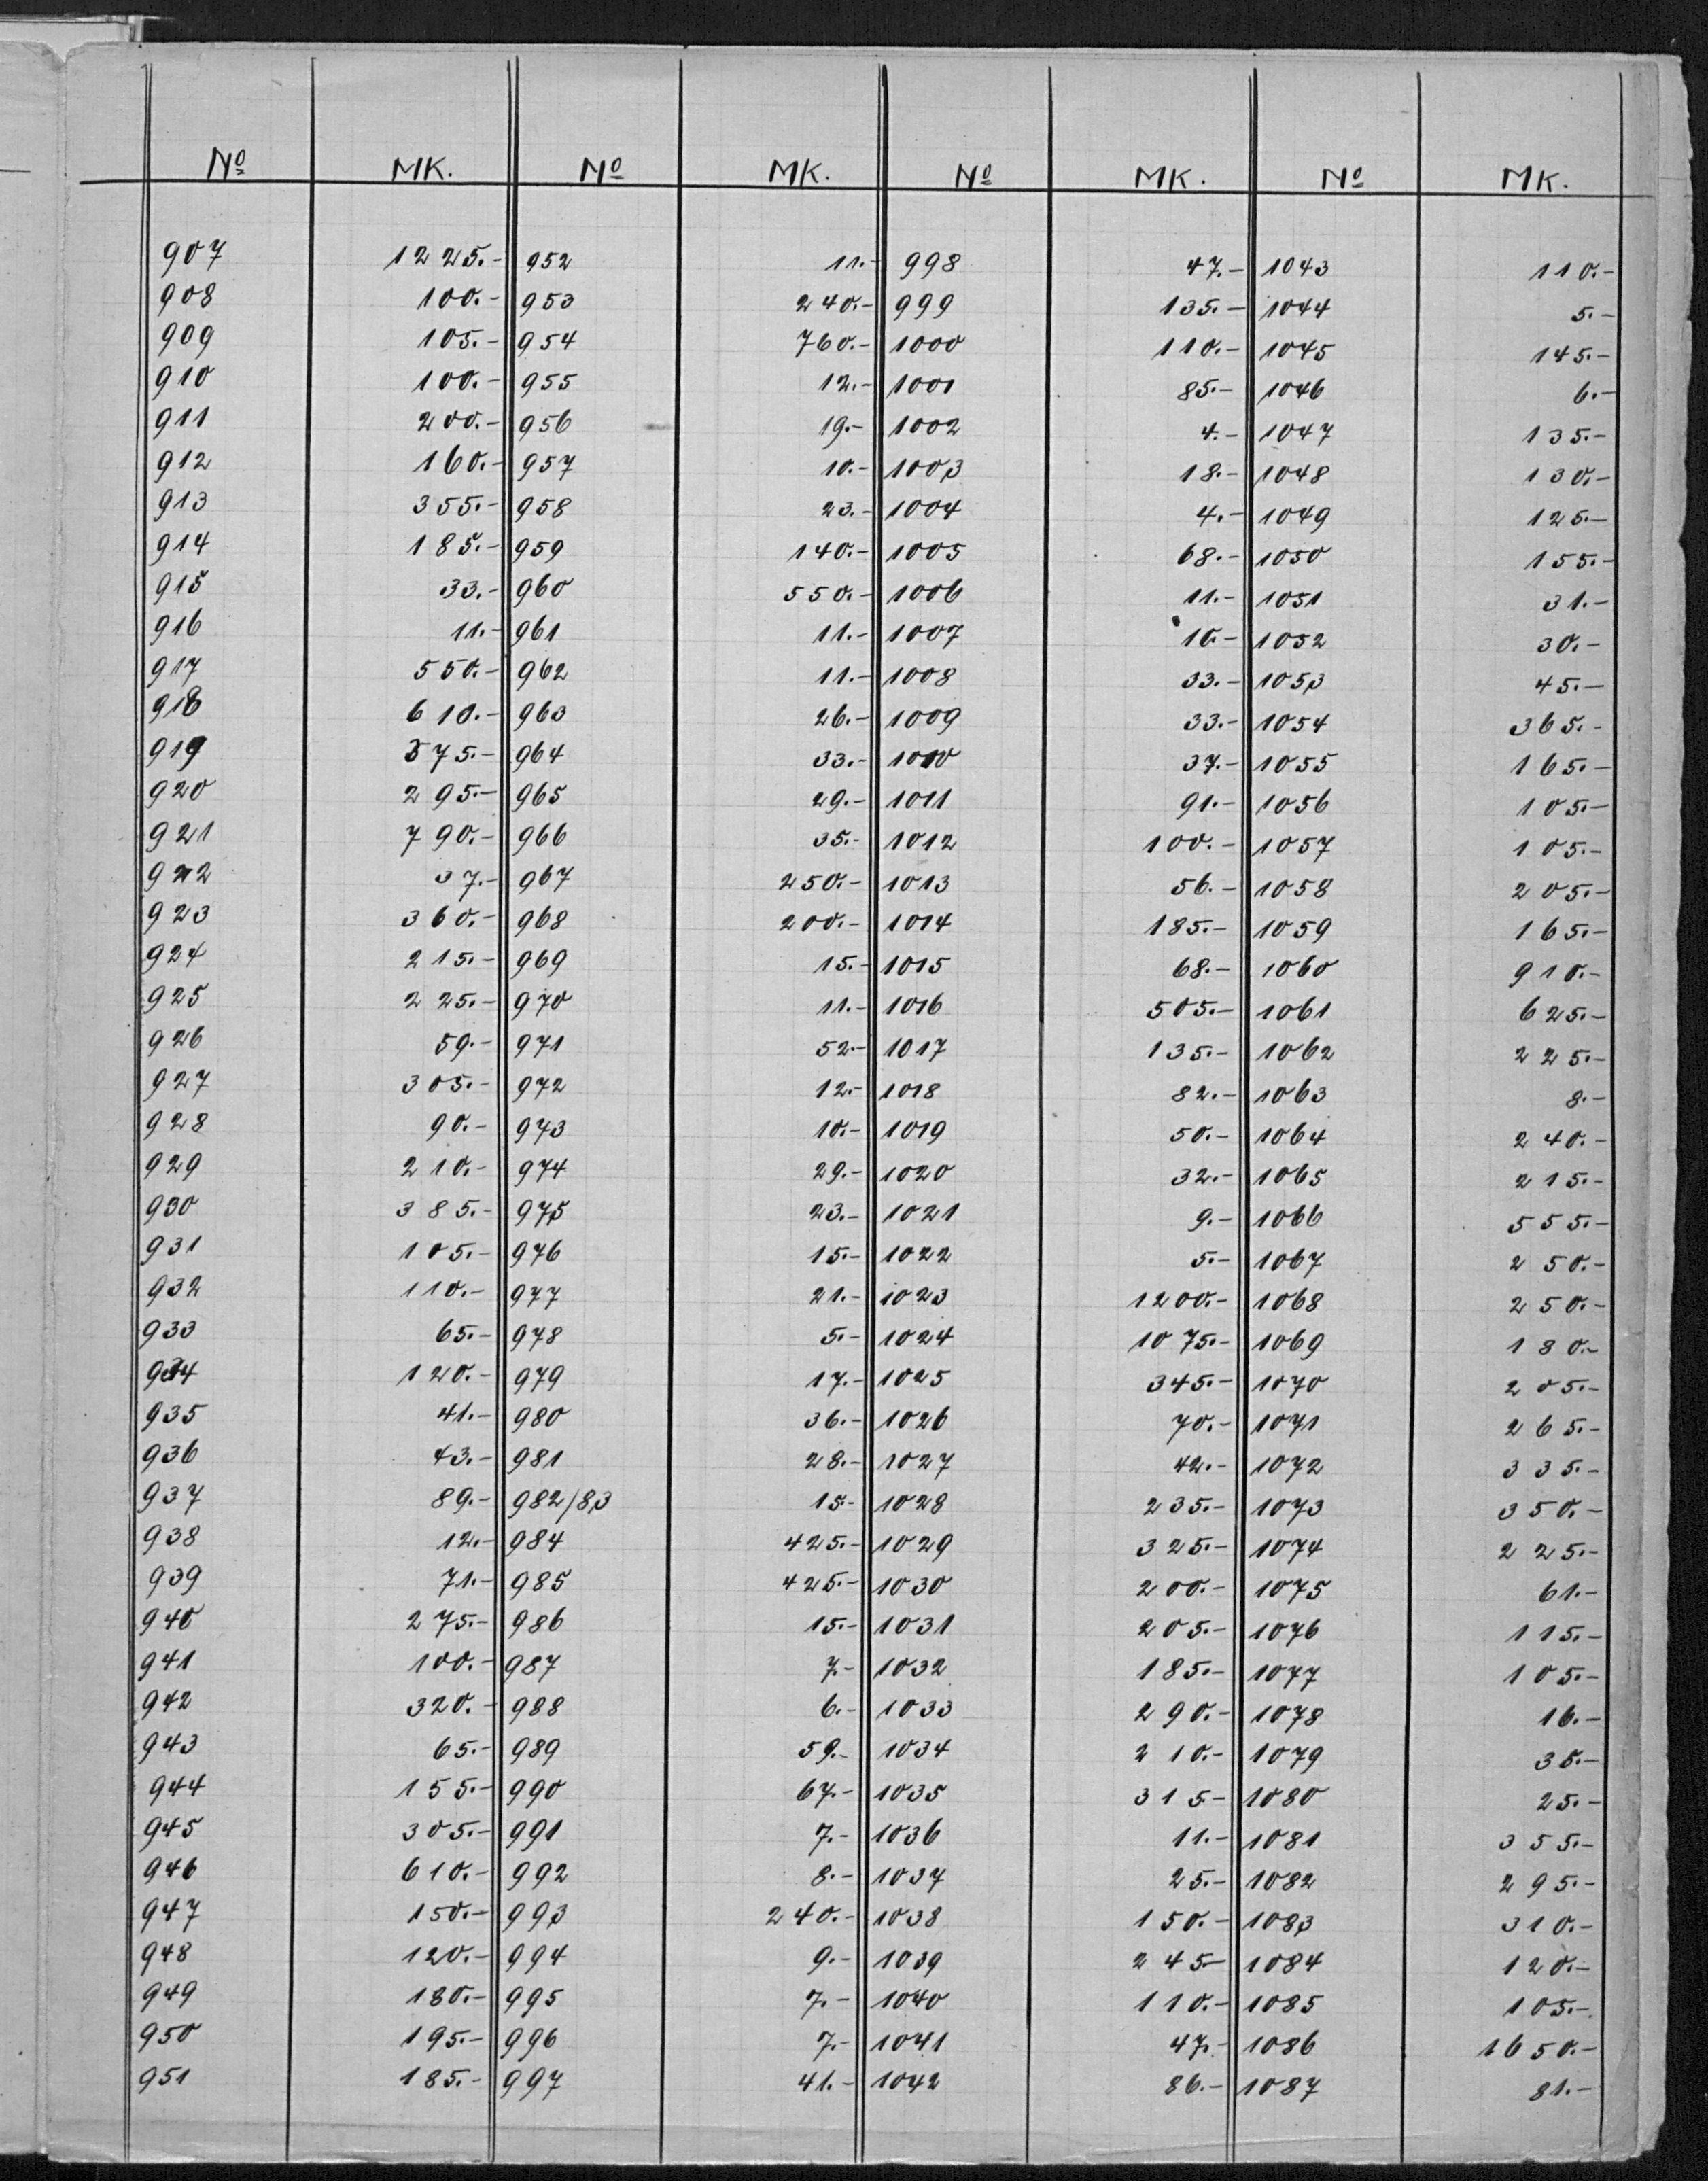 Nº MK. Nº MK. Nº MK. Nº MK.
907 1225.- 952 11.- 998 47.- 1043 110.-
908 100.- 953 240.- 999 135.- 1044 5.-
909 105.- 954 760.- 1000 110.- 1045 145.-
910 100.- 955 12.- 1001 85.- 1046 6.-
911 200.- 956 19.- 1002 4.- 1047 135.-
912 160.- 957 10.- 1003 18.- 1048 130.-
913 355.- 958 23.- 1004 4.- 1049 125.-
914 185.- 959 140.- 1005 68.- 1050 155.-
915 33.- 960 550.- 1006 11.- 1051 31.-
916 11.- 961 11.- 1007 10.- 1052 30.-
917 550.- 962 11.- 1008 33.- 1053 45.-
918 610.- 963 26.- 1009 33.- 1054 365.-
919 575.- 964 33.- 1010 37.- 1055 165.-
920 295.- 965 29.- 1011 91.- 1056 105.-
921 790.- 966 35.- 1012 100.- 1057 105.-
922 37.- 967 250.- 1013 56.- 1058 205.-
923 360.- 968 200.- 1014 185.- 1059 165.-
924 215.- 969 15.- 1015 68.- 1060 910.-
925 225.- 970 11.- 1016 505.- 1061 625.-
926 59.- 971 52.- 1017 135.- 1062 225.-
927 305.- 972 12.- 1018 82.- 1063 8.-
928 90.- 973 10.- 1019 50.- 1064 240.-
929 210.- 974 29.- 1020 32.- 1065 215.-
930 385.- 975 23.- 1021 9.- 1066 555.-
931 105.- 976 15.- 1022 5.- 1067 250.-
932 110.- 977 21.- 1023 1200.- 1068 250.-
933 65.- 978 5.- 1024 1075.- 1069 180.-
934 120.- 979 17.- 1025 345.- 1070 205.-
935 41.- 980 36.- 1026 70.- 1071 265.-
936 43.- 981 28.- 1027 42.- 1072 335.-
937 89.- 982/83 15.- 1028 235.- 1073 350.-
938 12.- 984 425.- 1029 325.- 1074 225.-
939 71.- 985 425.- 1030 200.- 1075 61.-
940 275.- 986 15.- 1031 205.- 1076 115.-
941 100.- 987 7.- 1032 185.- 1077 105.-
942 320.- 988 6.- 1033 290.- 1078 16.-
943 65.- 989 59.- 1034 210.- 1079 35.-
944 155.- 990 67.- 1035 315- 1080 25.-
945 305.- 991 7.- 1036 11.- 1081 355.-
946 610.- 992 8.- 1037 25.- 1082 295.-
947 150.- 993 240.- 1038 150.- 1083 310.-
948 120.- 994 9.- 1039 245- 1084 120.-
949 180.- 995 7.- 1040 110.- 1085 105.-
950 195.- 996 7.- 1041 47.- 1086 1650.-
951 185.- 997 41.- 1042 86.- 1087 81.-